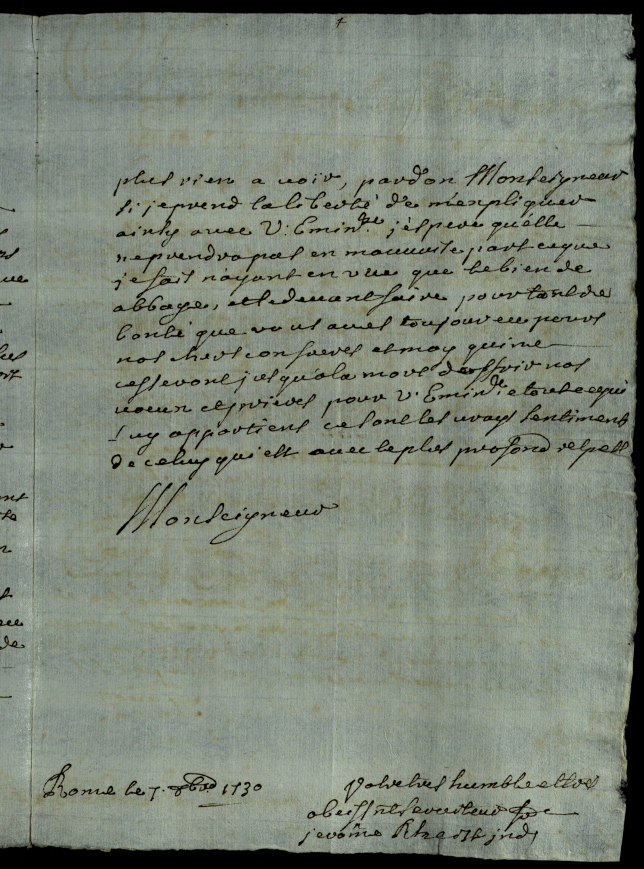 plus rien a voir, pardon Monseigneur
si je prend la liberté de m'expliquer
ainsy avec V: Emin.ce j'espere qu'elle
ne prendra pas en mauvaise part ce que
je fait n'ayant en vue que le bien de
abbaye, et le devant faire pour tant de
bonté que vous aves toujour eu pour
nos chers confreres et moy qui ne
cesseront jusqu'a la mort d'offrir nos
voeux et prieres pour V: Emin.ce e tout ce qui
luy appartient ce sont les vrays sentiments
de celuy qui est avec le plus profond respect
Monseigneur
Rome le 7. 8bre 1730
Votre tres humble et tres
obeissant serviteur
jerome